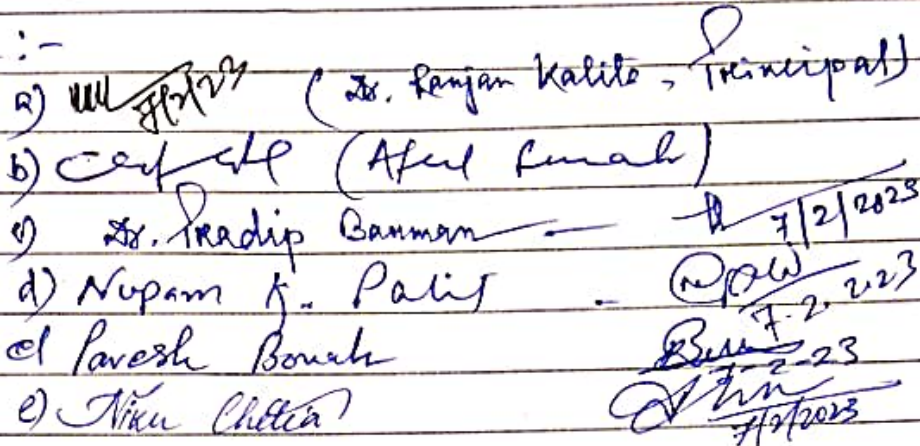 :-
a) 7/2/23 (Dr. Ranjan Kalita, Principal)
b) (Atul Sumah)
c) Dr. Pradip Barman — 7/2/2023
d) Nupam K. Palit - 7.2.2.23
e) Paresh Borah 7-2-23
e) Niku Chetia 7/2/2023